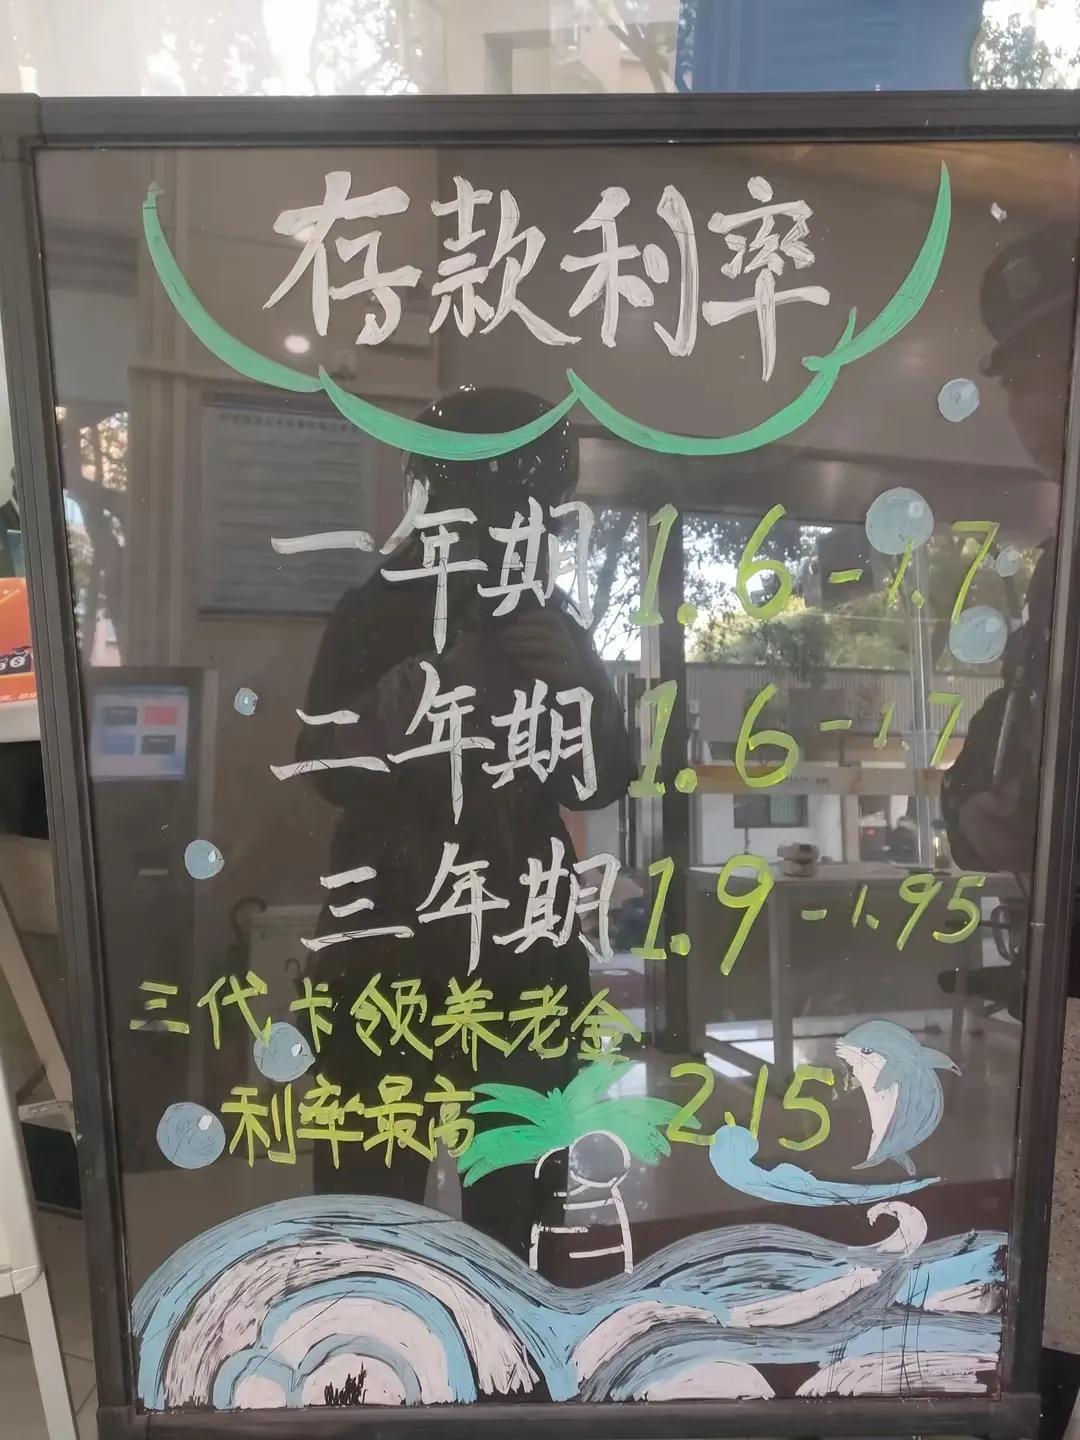 存款利率
一年期 1.6-1.7
二年期 1.6-1.7
三年期 1.9-1.95
三代卡领养老金
利率最高 2.15